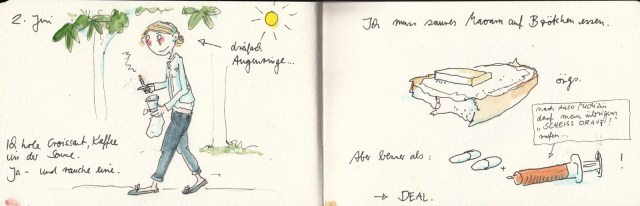 2. Juni
dreifach
Augenringe...
Ich hole Croissant, Kaffee
in der Sonne.
Ja - und rauche eine.
Ich muss saures Marzam auf Brötchen essen.
örgs.
nach dieser Medizin
darf man übrigens
"SCHEISS DRAUF!"
rufen...
Aber besser als:
+
!
→ DEAL.